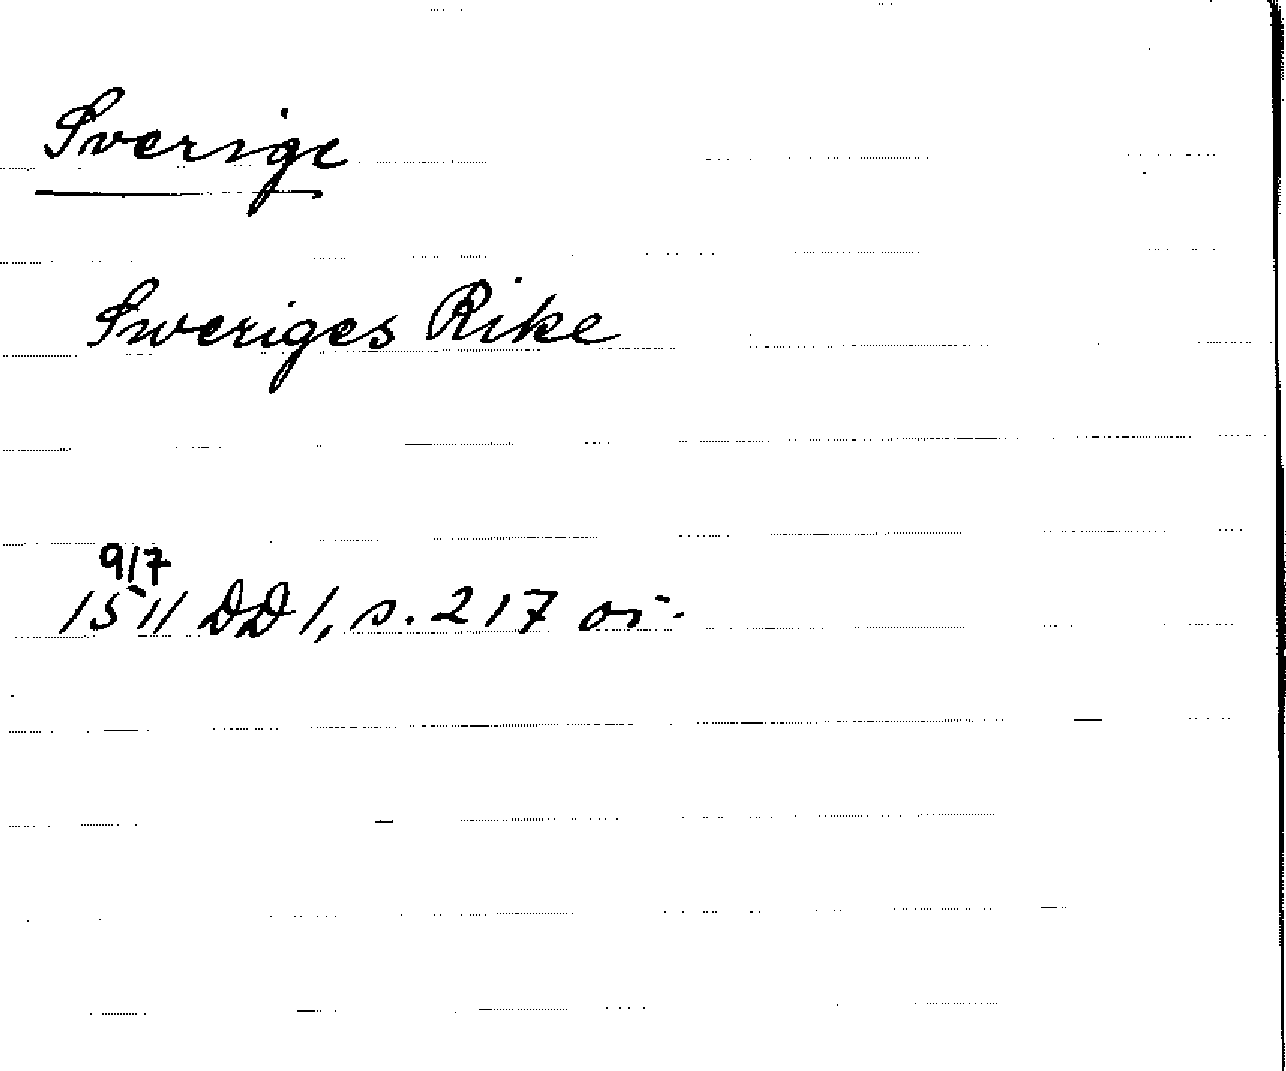 Sverige
Sweriges Rike
9/7
1511 DD 1, s. 217 or.